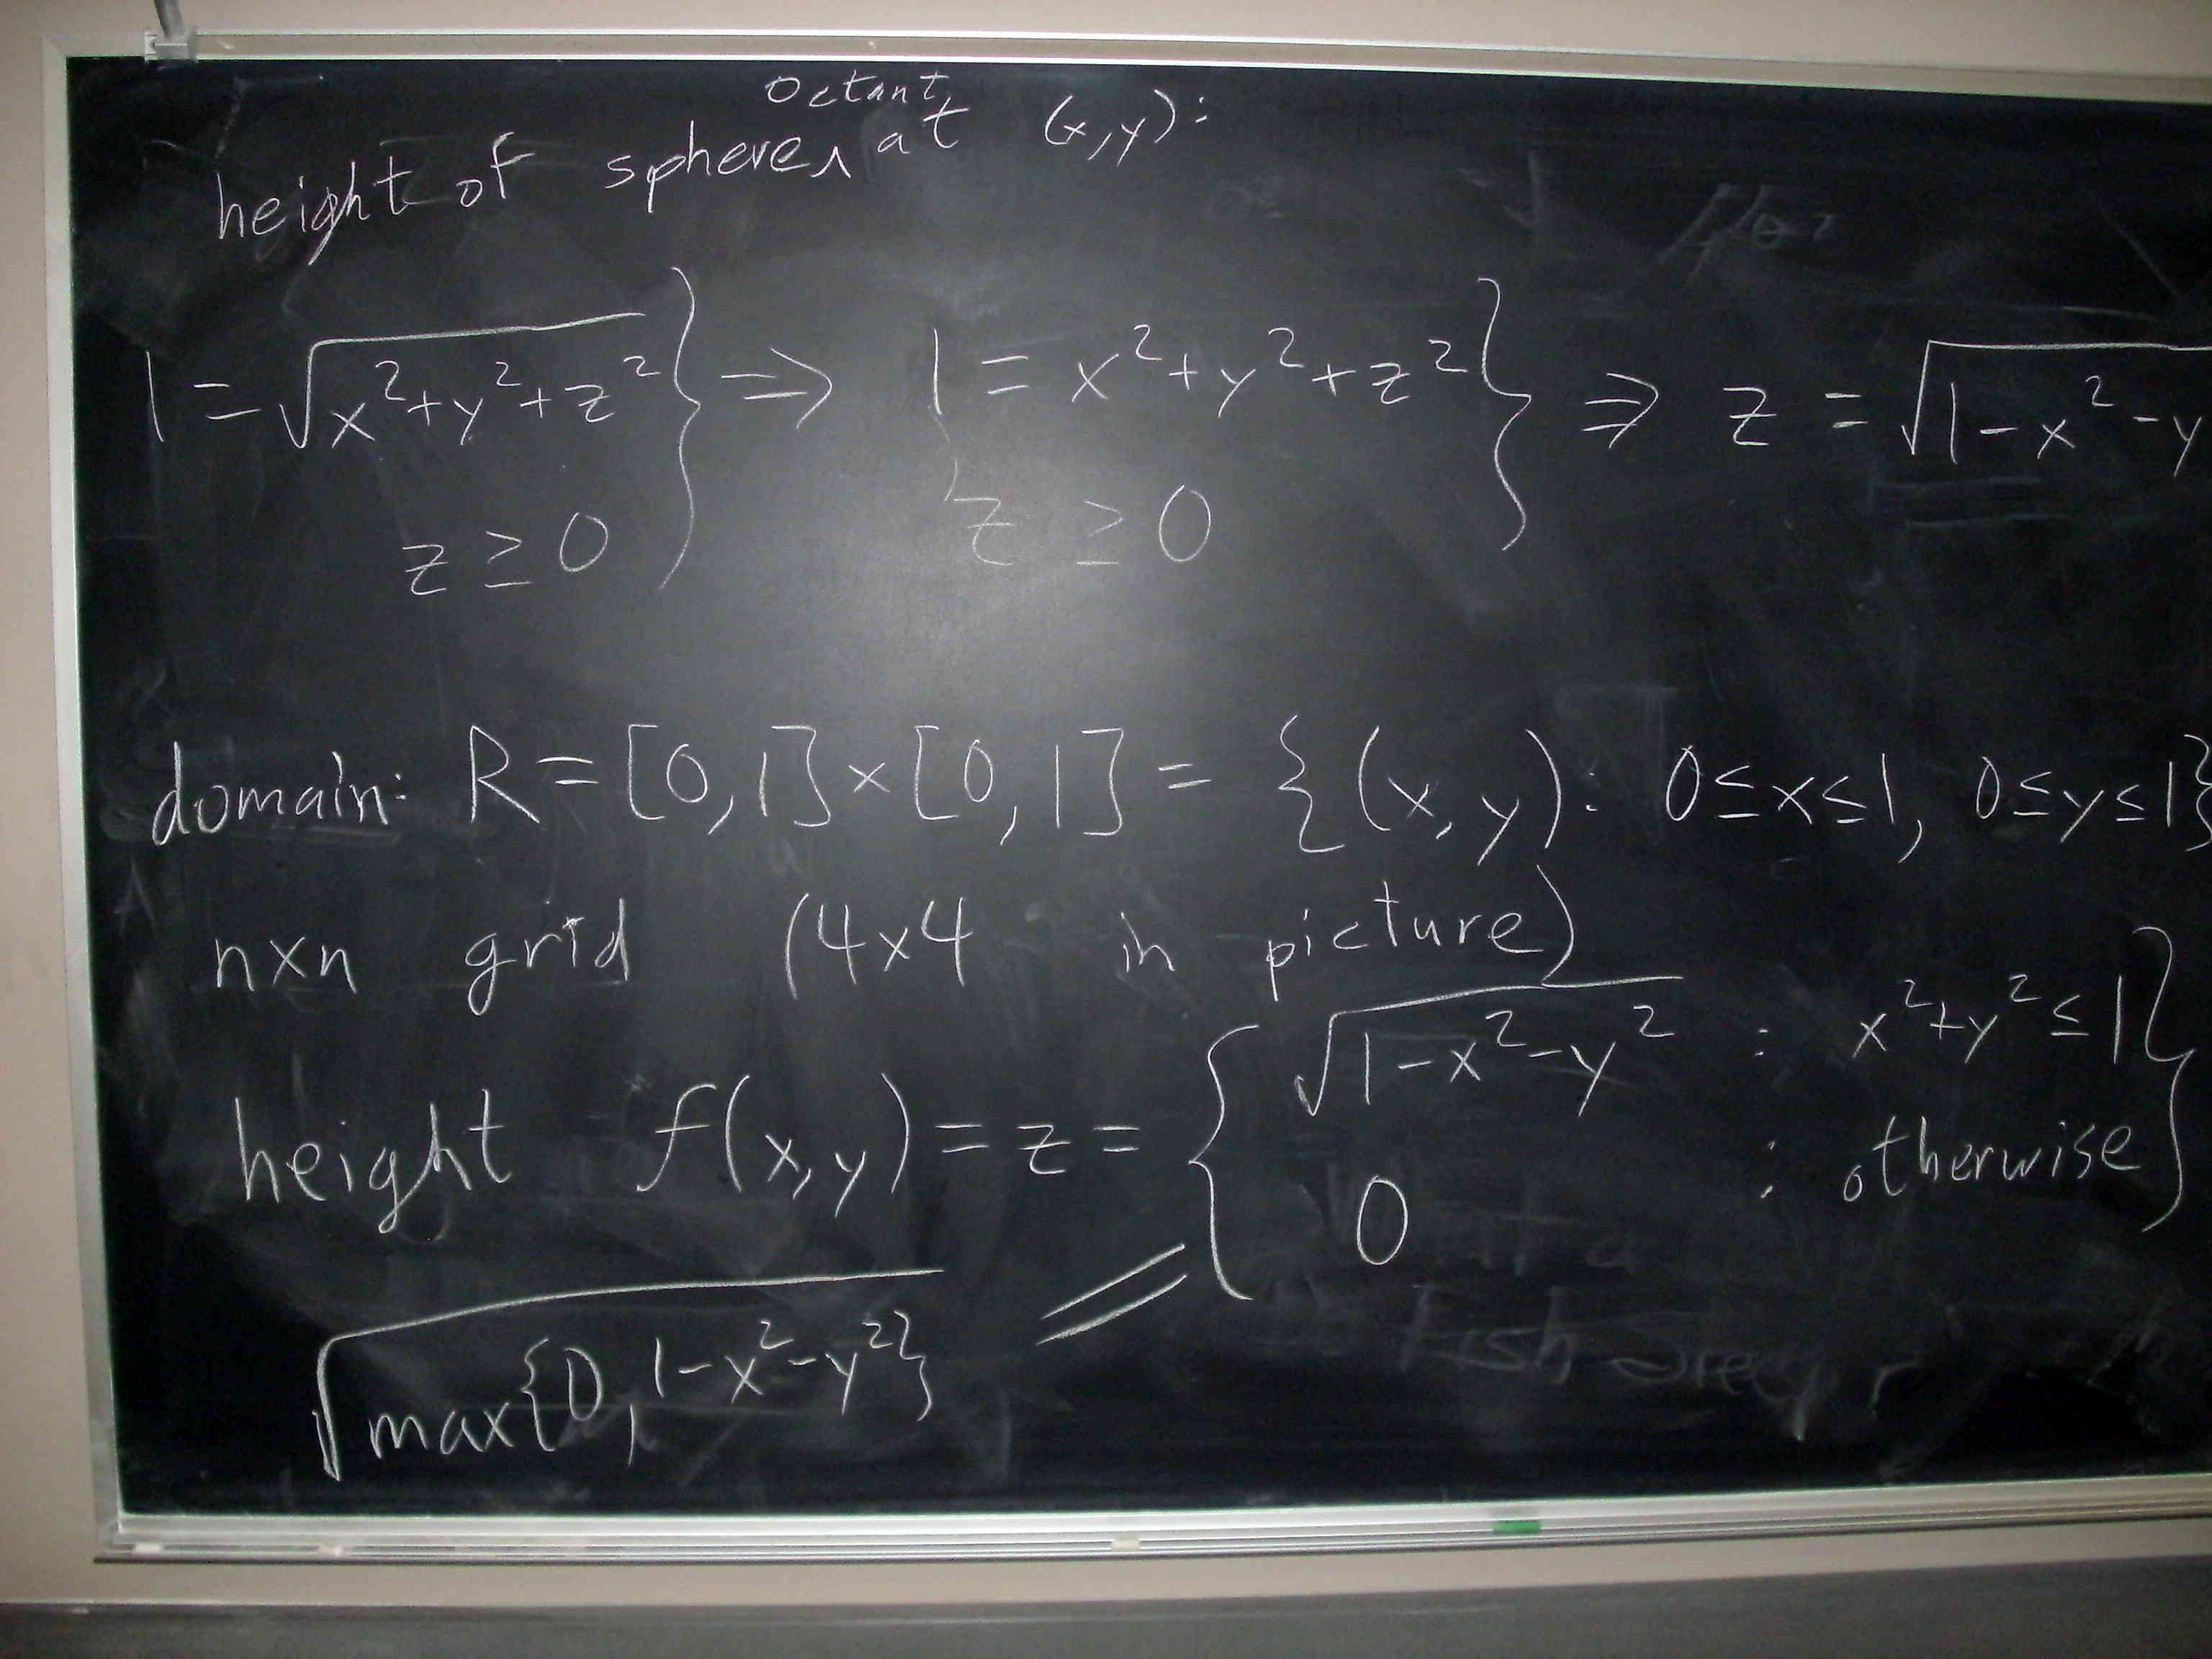 height of sphere octant at (x,y):
1 = √(x²+y²+z²) } ⇒ 1 = x²+y²+z² } ⇒ z = √(1-x²-y
z ≥ 0 z ≥ 0
domain: R = [0,1]×[0,1] = {(x,y): 0≤x≤1, 0≤y≤1}
n×n grid (4×4 in picture)
height f(x,y) = z = { √(1-x²-y²) : x²+y² ≤ 1 }
0 : otherwise
√(max{0, 1-x²-y²}) =